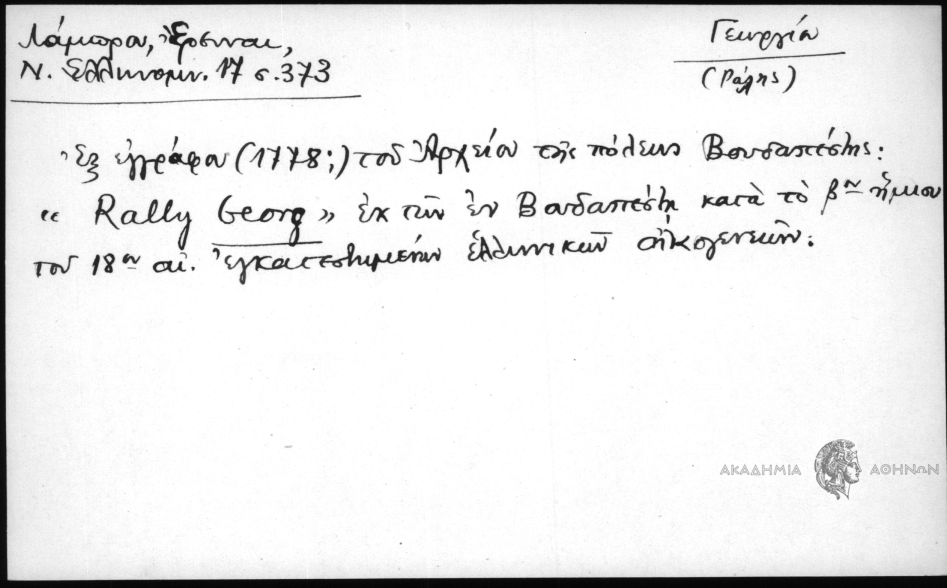 Λάμπρου, Ἔρευναι,
Ν. Ἑλληνομν. 17 σ. 373
Γεωργίου
(Ράλης)
Ἐξ ἐγγράφου (1778;) τοῦ Ἀρχείου τῆς πόλεως Βουδαπέστης:
“ Rally Georg ” ἐκ τῶν ἐν Βουδαπέστῃ κατὰ τὸ βον ἥμισυ
τοῦ 18ου αἰ. ἐγκατεστημένων ἑλληνικῶν οἰκογενειῶν.
ΑΚΑΔΗΜΙΑ ΑΘΗΝΩΝ